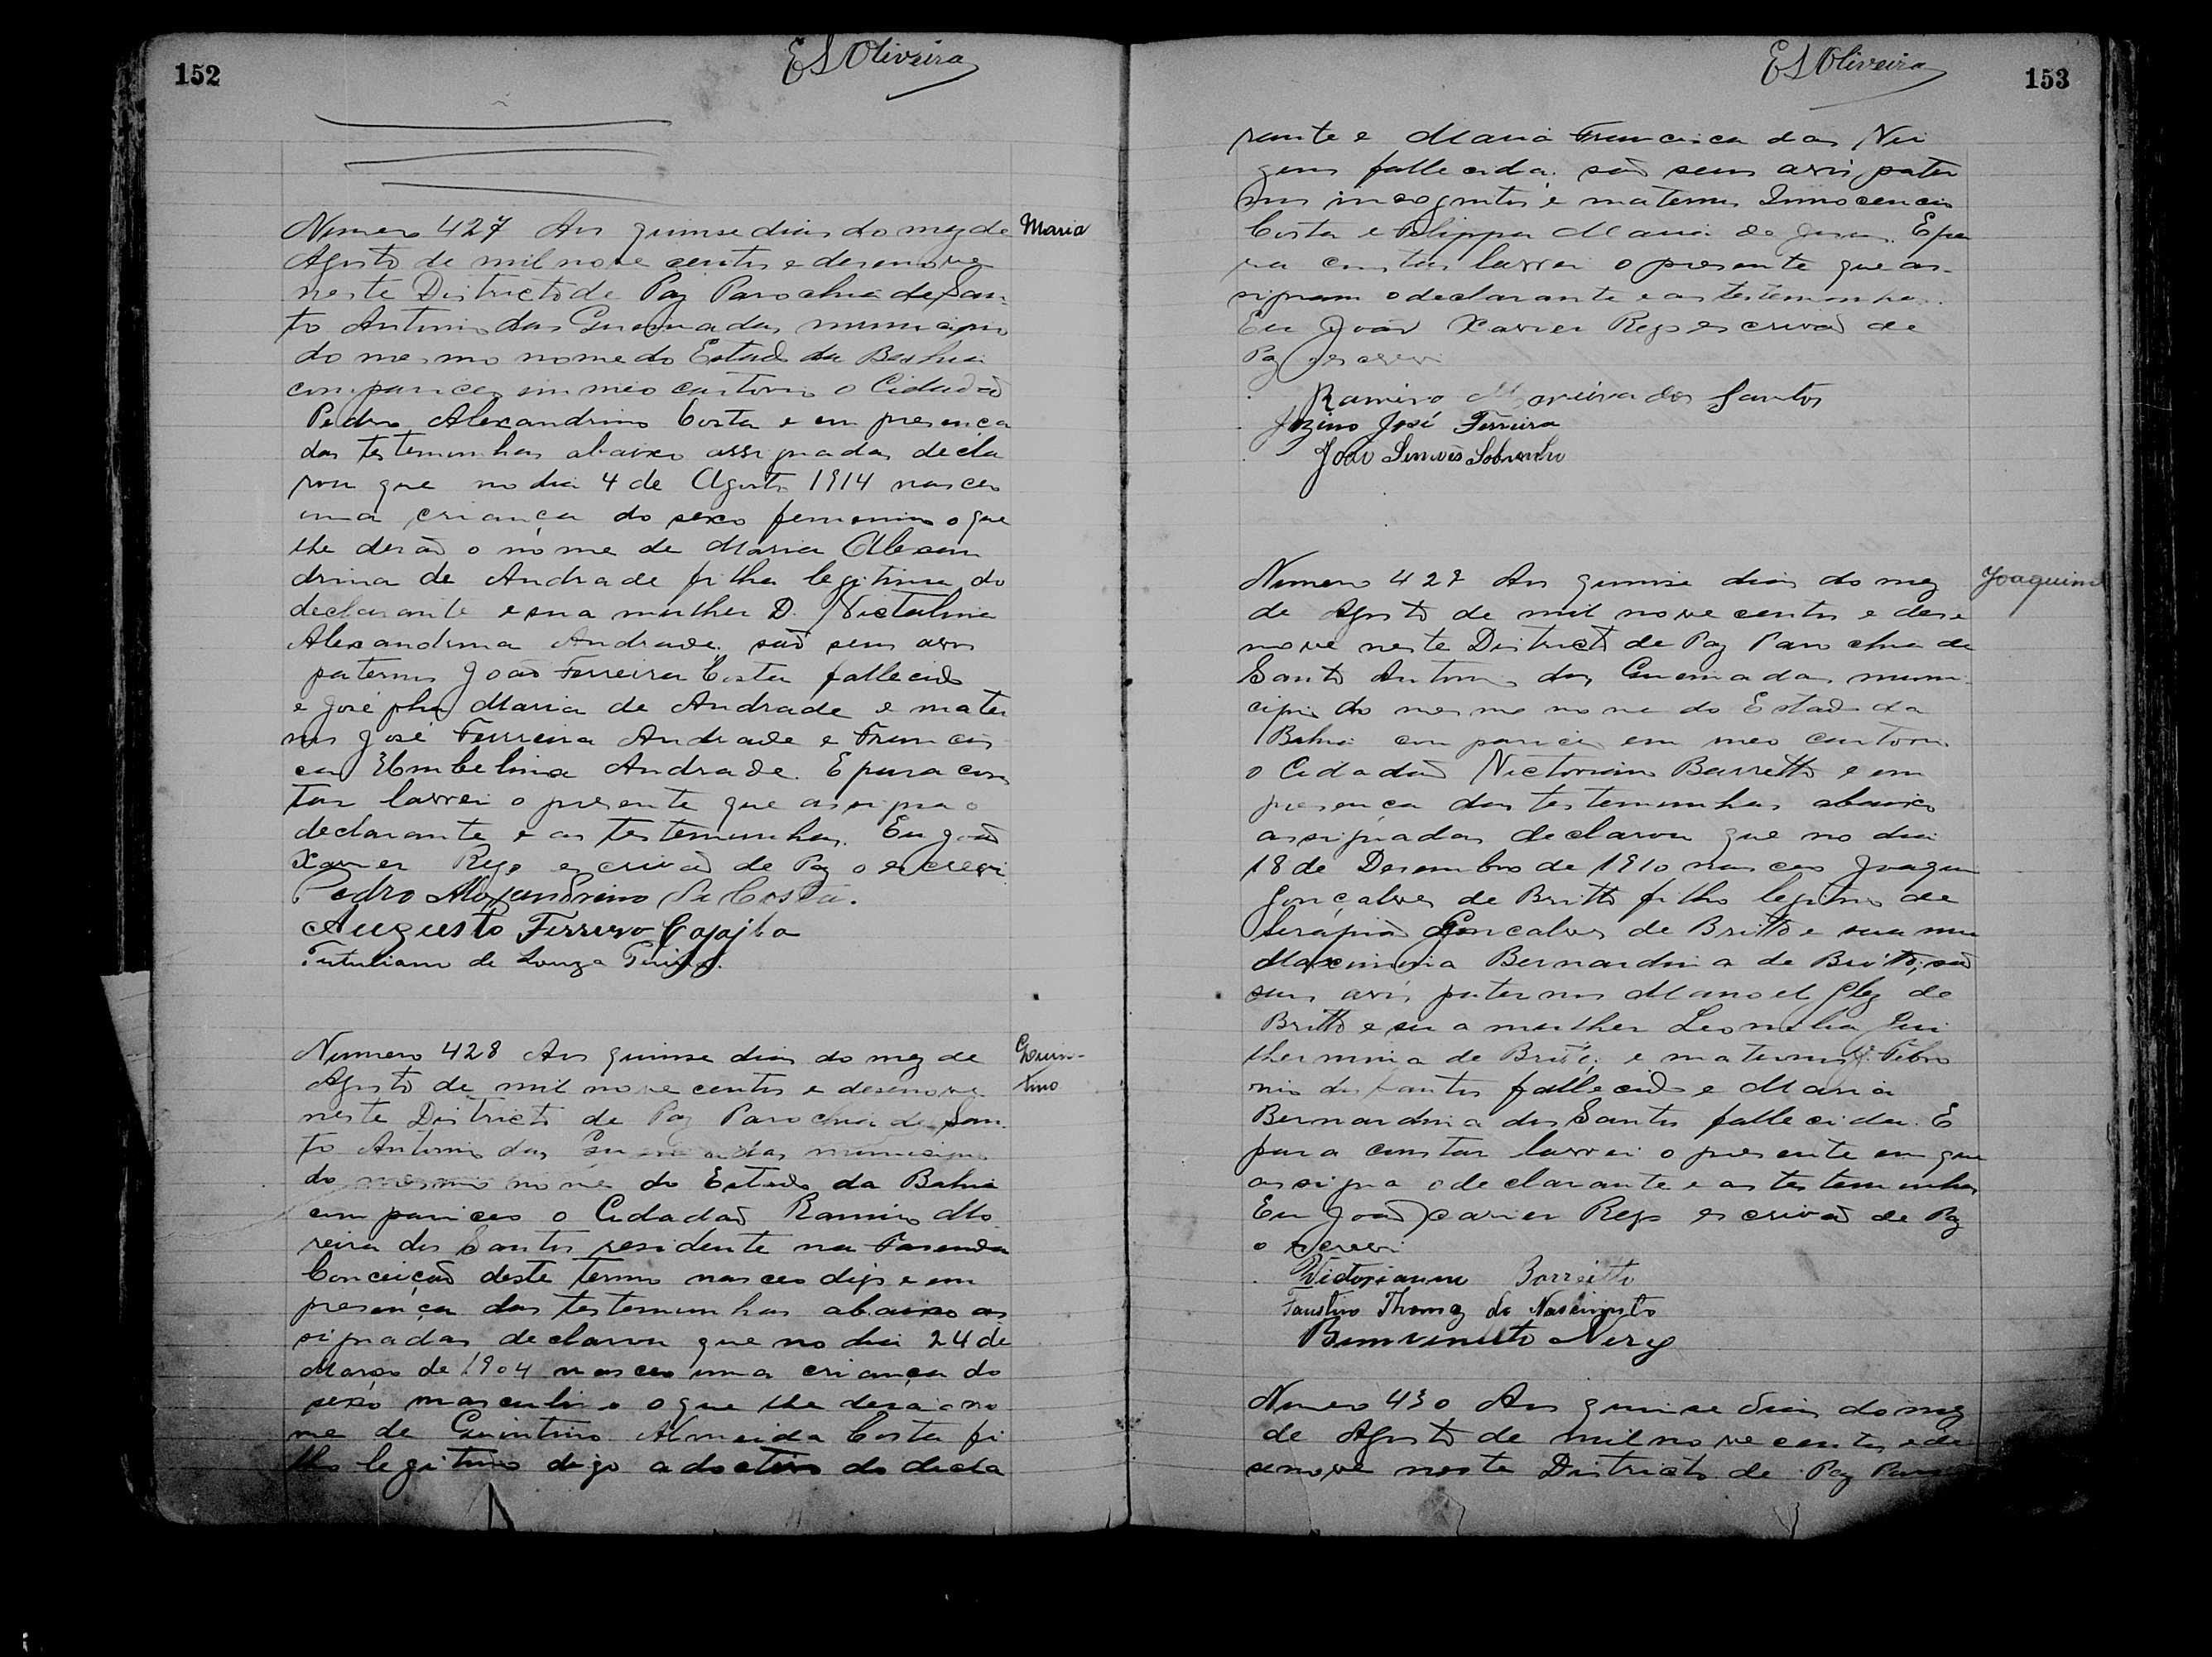 152
ESOliveira
Numero 427 Aos quinse dias do mez de
Maria
Agosto de mil nove centos e desenove
neste Districto de Paz Parochia de San
to Antonio das Queimadas municipio
do mesmo nome do Estado da Bahia
compareceo em meo cartorio o Cidadaõ
Pedro Alexandrino Costa e em presença
das testemunhas abaixo assignadas decla
rou que no dia 4 de Agosto 1914 nasceo
uma criança do sexo femenino o que
lhe deraõ o nome de Maria Alexan
drina de Andrade filha legitima do
declarante e sua mulher D. Victalina
Alexandrina Andrade, saõ seus avos
paternos João Ferreira Costa fallecido
e Josépha Maria de Andrade e mater
nos José Ferreira Andrade e Francis
ca Umbelina Andrade. E para cons
tar lavrei o presente que assigna o
declarante e as testemunhas. Eu João
Xavier Rego escrivaõ de Paz o escrevi
Pedro Alexandrino da Costa.
Augusto Ferrero
Tertuliano de Souza
Numero 428 Aos quinse dias do mez de
Quin-
tino
Agosto de mil nove centos e desenove
neste Districto de Paz Parochia de San
to Antonio das Queimadas municipio
do mesmo nome do Estado da Bahia
compareceo o Cidadaõ Ramiro Mo
reira dos Santos residente na Fasenda
Conceiçaõ deste termo nasceo digo e em
presença das testemunhas abaixo as
signadas declarou que no dia 24 de
Março de 1904 nasceo uma criança do
sexo masculino o que lhe deraõ o no
me de Quintino Almeida Costa fi
lho legitimo digo adoctivo do decla
ESOliveira
153
rante e Maria Francisca das Vir
gens fallecida. saõ seus avós pater
nos incognitos e maternos Innocencio
Costa e Felippa Maria de Jesus. E pa
ra constar lavrei o presente que as-
signam o declarante e as testemunhas.
Eu João Xavier Rego escrivaõ de
Paz o escrevi
Ramiro Moreira dos Santos
José Ferreira
João Simões Sobrinho
Numero 429 Aos quinse dias do mez
Joaquim
de Agosto de mil nove centos e dese
nove neste Districto de Paz Parochia de
Santo Antonio das Queimadas muni
cipio do mesmo nome do Estado da
Bahia compareceo em meo cartorio
o Cidadaõ Victoriano Barretto e em
presença das testemunhas abaixo
assignadas declarou que no dia
18 de Desembro de 1910 nasceo Joaquim
Gonçalves de Britto filho legitimo de
Serapiaõ Goncalves de Britto e sua mu
Maximina Bernardina de Britto, saõ
seus avós paternos Manoel Glz de
Britto e sua mulher Leonilia Gui
lhermina de Britto; e maternos Febro
nio dos Santos fallecido e Maria
Bernardina dos Santos fallecida. E
para constar lavrei o presente em que
assigna o declarante e as testemunhas
Eu João Xavier Rego escrivaõ de Paz
o escrevi
Victorianno Barreitto
Faustino Thomaz do Nascimento
Bemvenuto Nery
Numero 430 Aos quinse dias do mez
de Agosto de mil nove centos e de
senove neste Districto de Paz Paro